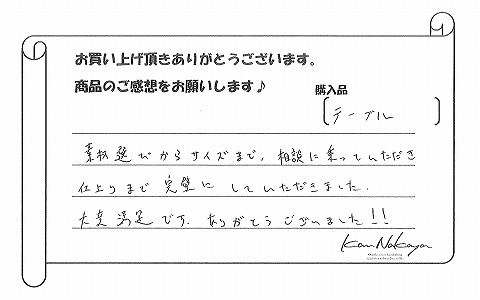 お買い上げ頂きありがとうございます。
商品のご感想をお願いします♪
購入品
テーブル
素材選びからサイズまで、相談に乗っていただき
仕上りまで完璧にしていただきました。
大変満足です。ありがとうございました!!